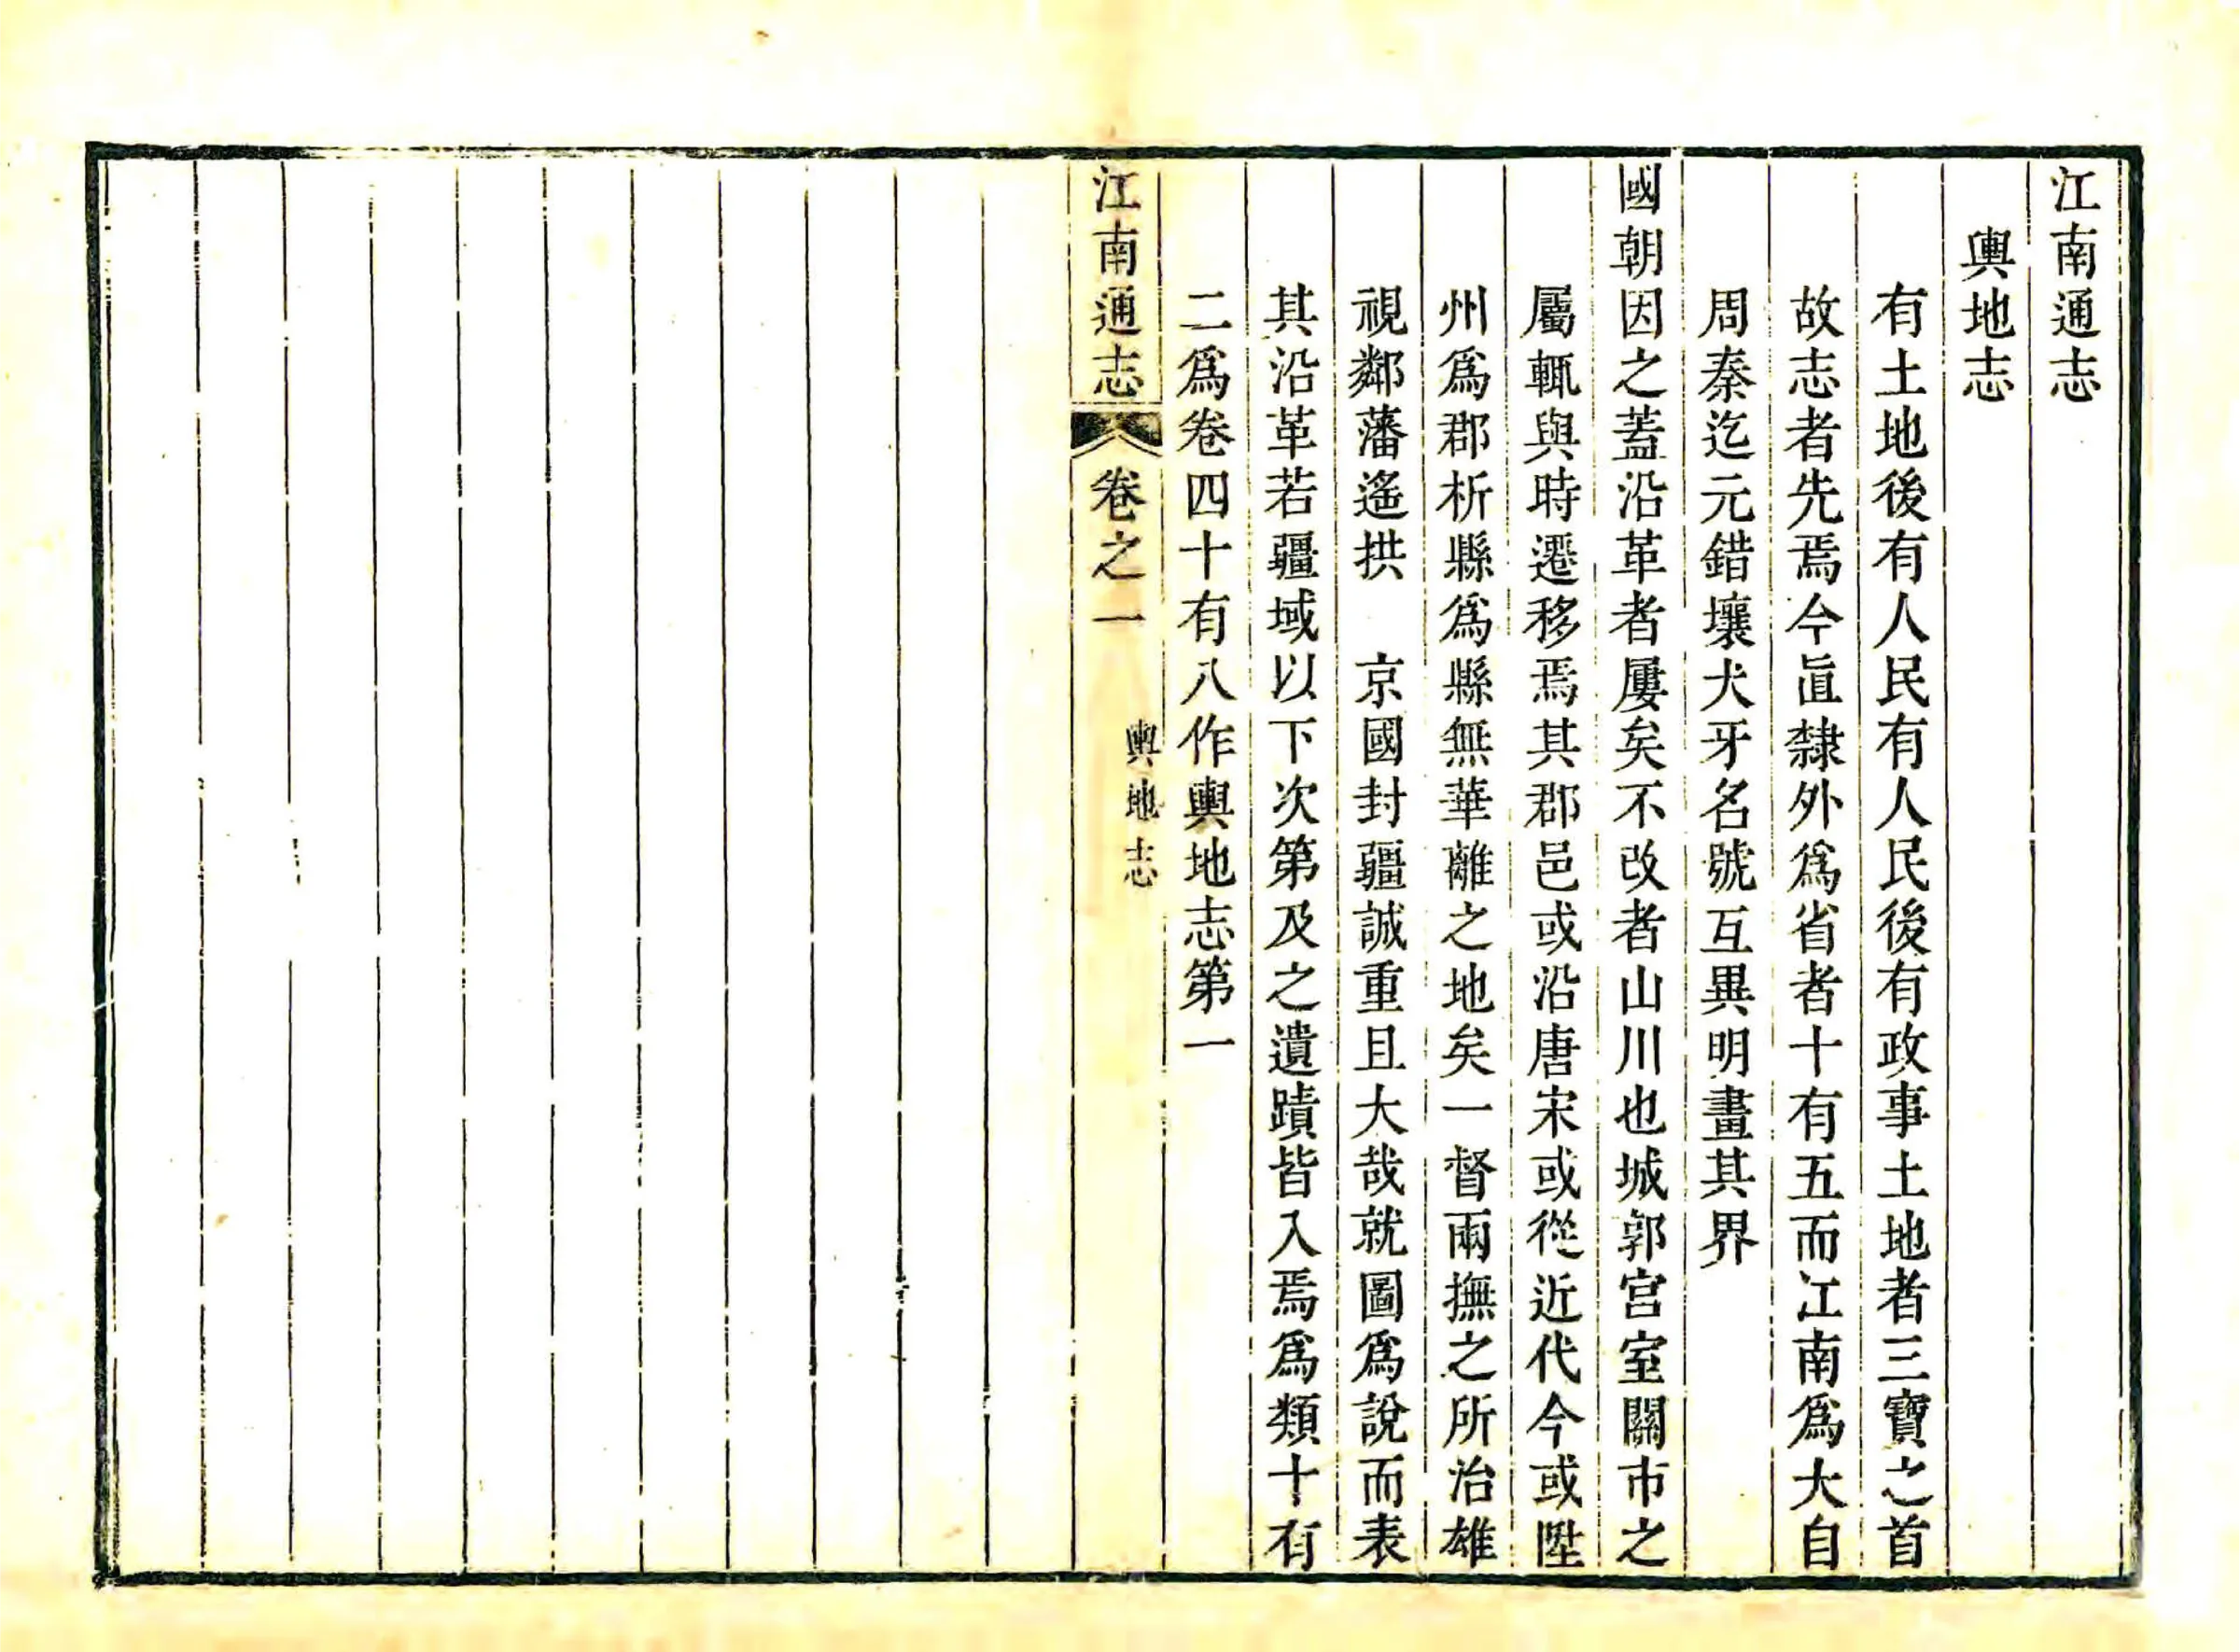 江南通志
輿地志
有土地後有人民有人民後有政事土地者三寶之首
故志者先焉今直隸外爲省者十有五而江南爲大自
周秦迄元錯壤犬牙名號互異明畫其界
國朝因之蓋沿革者屢矣不改者山川也城郭宮室關市之
屬輒與時遷移焉其郡邑或沿唐宋或從近代今或陞
州爲郡析縣爲縣無華離之地矣一督兩撫之所治雄
視鄰藩遙拱　京國封疆誠重且大哉就圖爲說而表
其沿革若疆域以下次第及之遺蹟皆入焉爲類十有
二爲卷四十有八作輿地志第一
江南通志
卷之一
輿地志